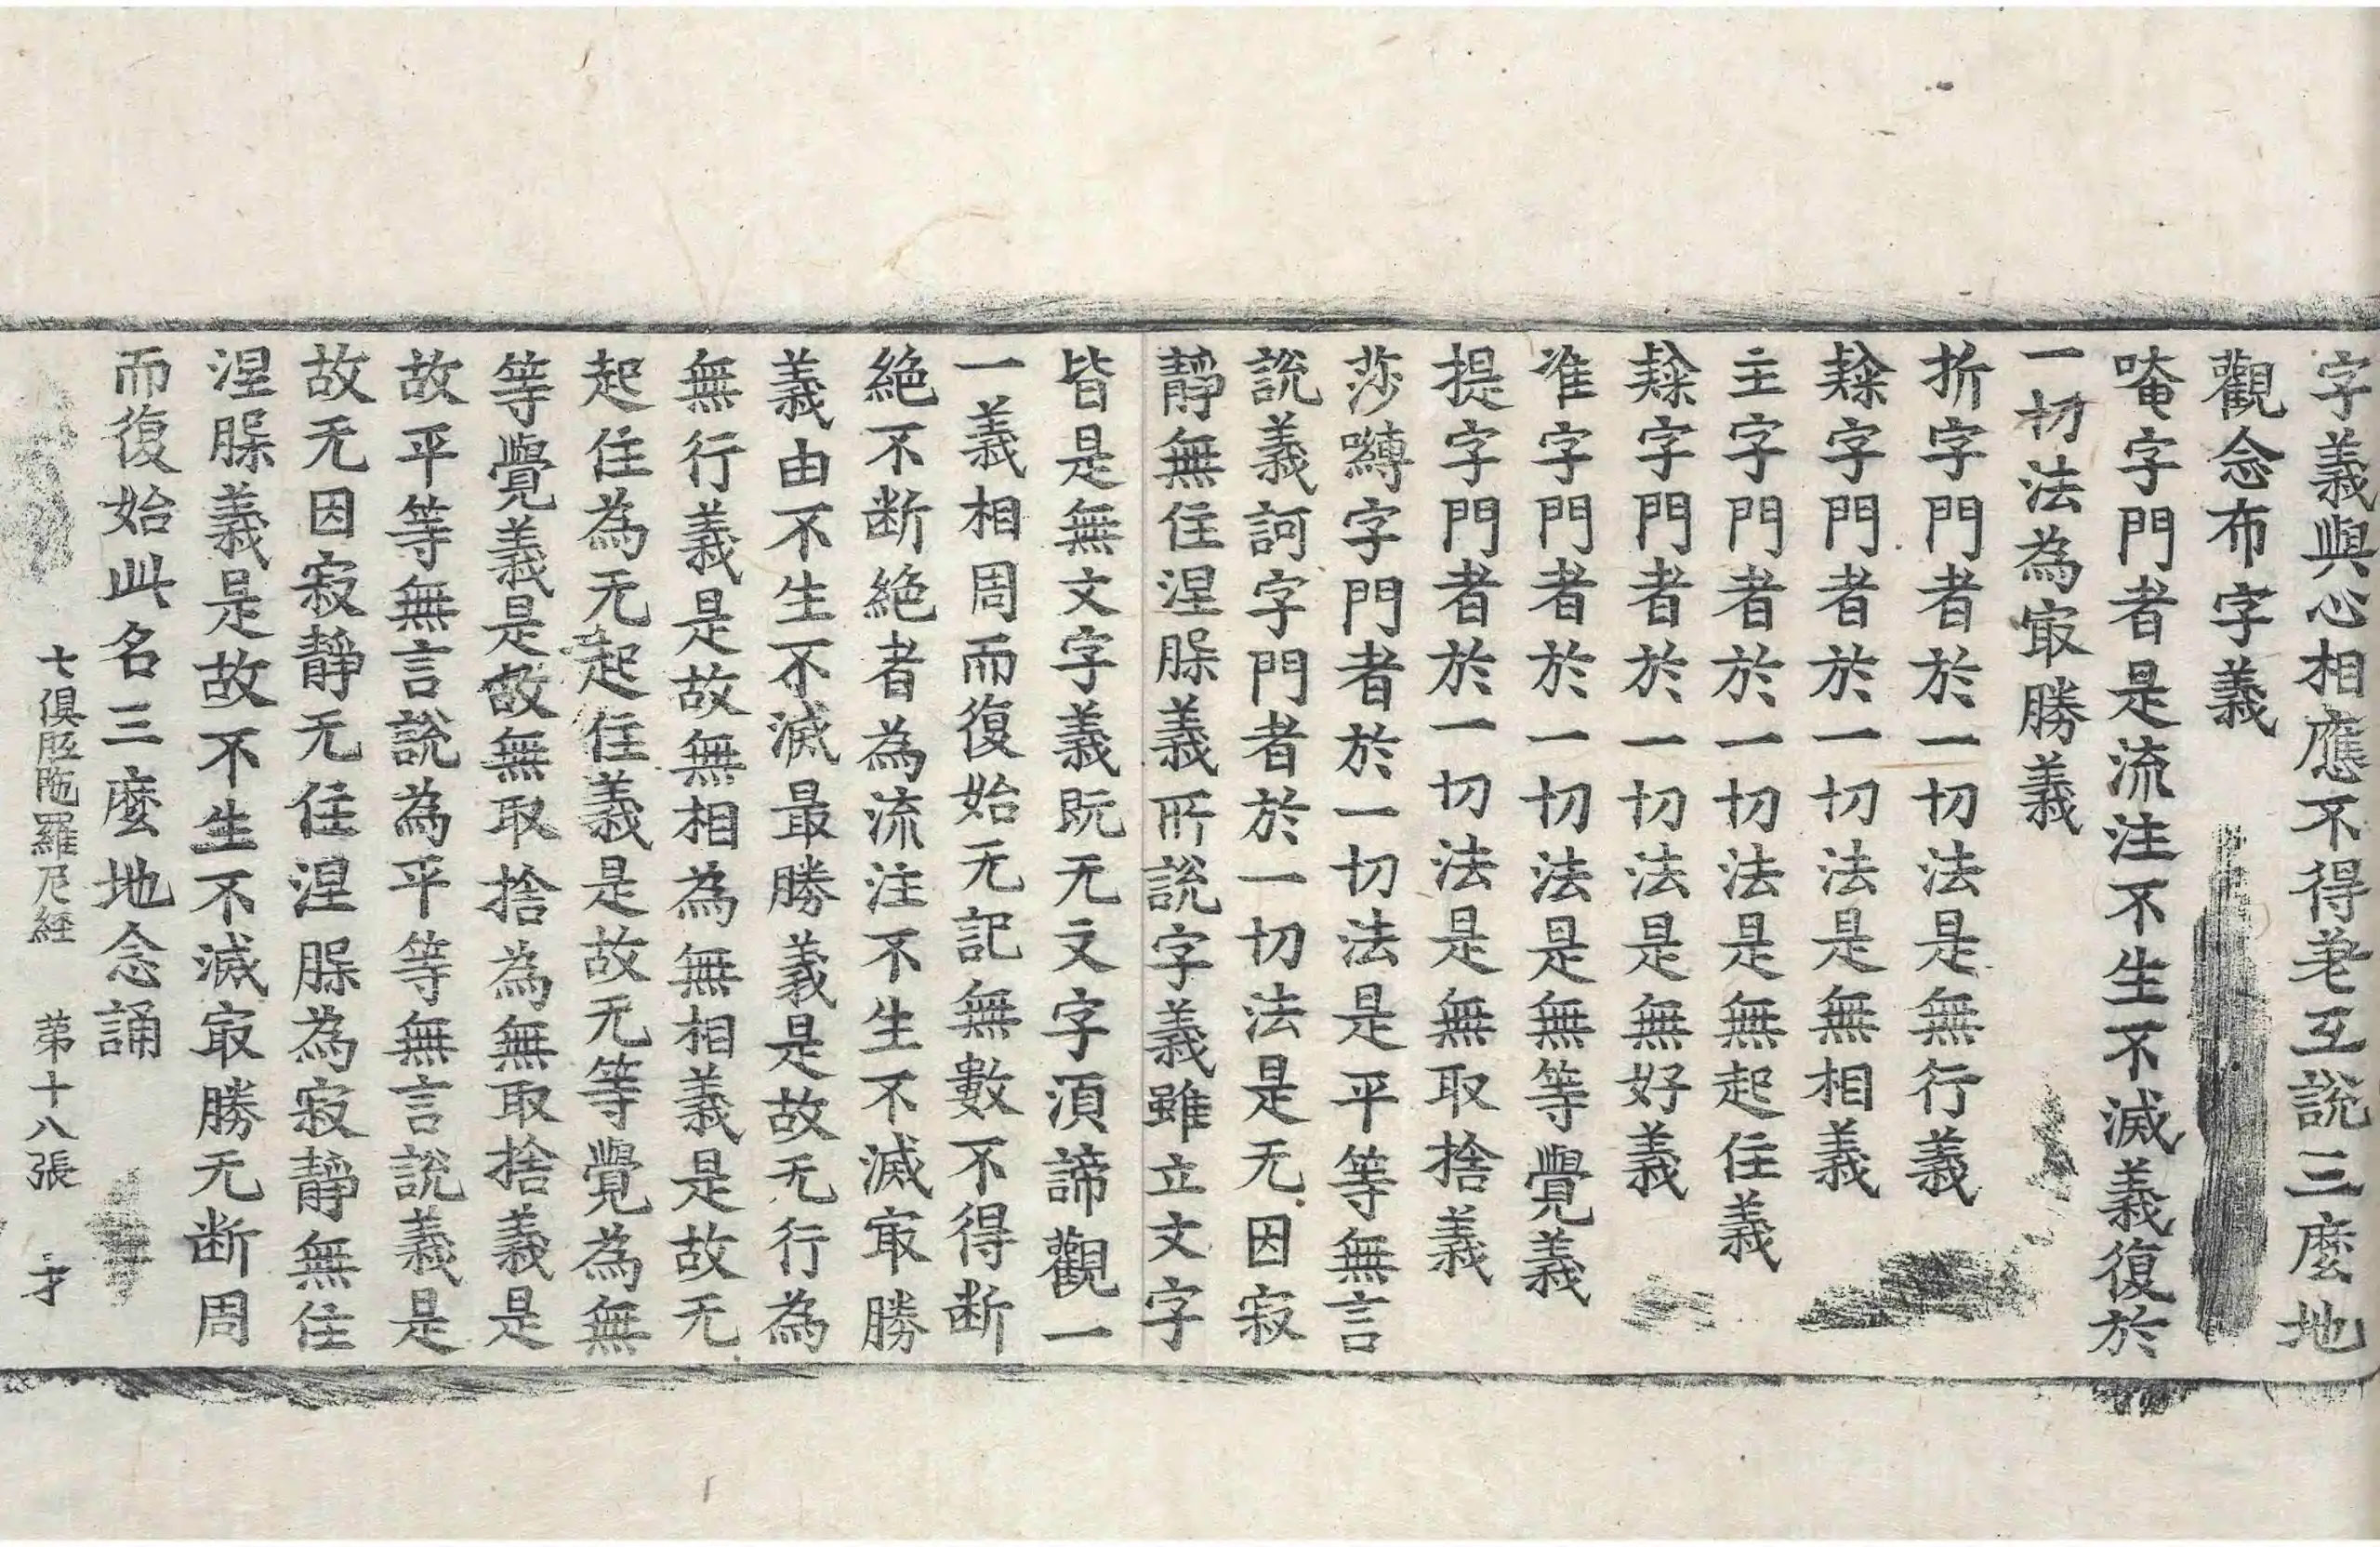 字義與心相應不得差互說三麼地
觀念布字義
唵字門者是流注不生不滅義復於
一切法為㝡勝義
折字門者於一切法是無行義
隸字門者於一切法是無相義
主字門者於一切法是無起住義
隸字門者於一切法是無好義
准字門者於一切法是無等覺義
提字門者於一切法是無取捨義
莎嚩字門者於一切法是平等無言
說義訶字門者於一切法是无因寂
靜無住涅槃義所說字義雖立文字
皆是無文字義既无文字湏諦觀一
一義相周而復始无記無數不得断
絶不断絶者為流注不生不滅㝡勝
義由不生不滅最勝義是故无行為
無行義是故無相為無相義是故无
起住為无起住義是故无等覺為無
等覺義是故無取捨為無取捨義是
故平等無言說為平等無言說義是
故无因寂靜无住涅槃為寂靜無住
涅槃義是故不生不滅㝡勝无断周
而復始此名三麼地念誦
七俱胝陁羅尼經 苐十八張 才